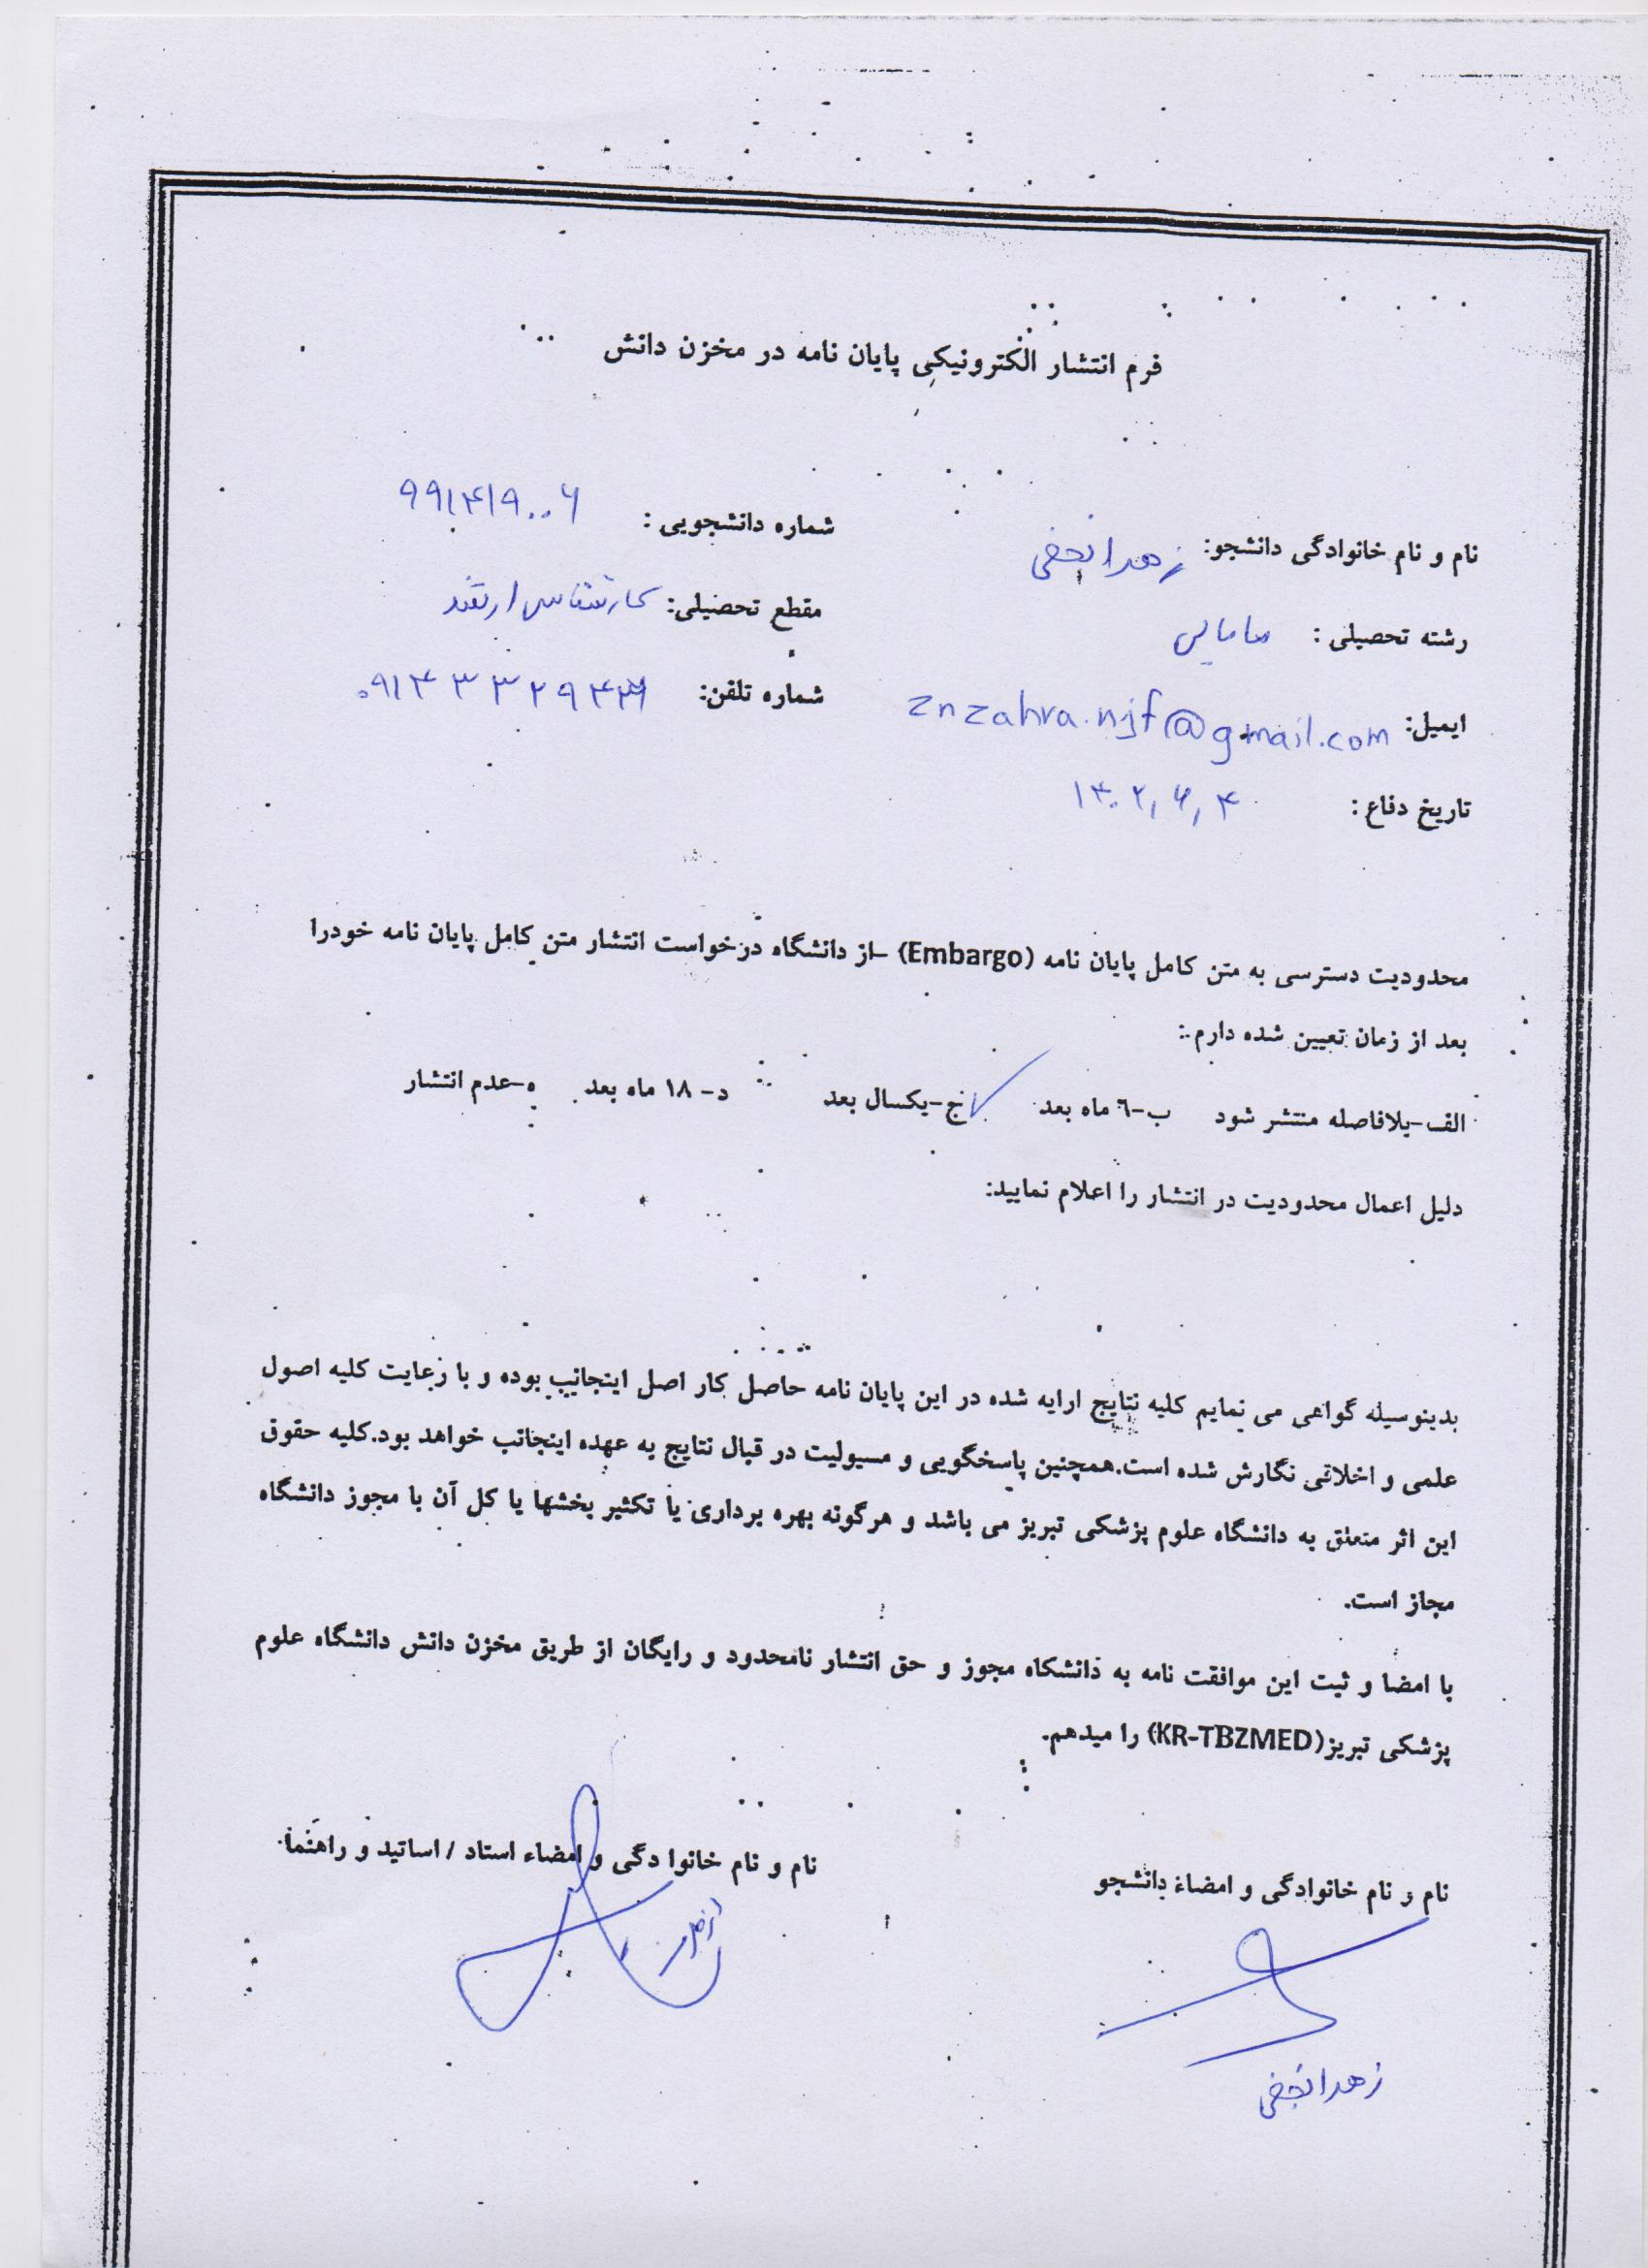 فرم انتشار الکترونیکی پایان نامه در مخزن دانش
نام و نام خانوادگی دانشجو: زهرا نجفی شماره دانشجویی : ۹۹۱۴۱۹۰۰۶
رشته تحصیلی : مامایی مقطع تحصیلی: کارشناسی ارشد
ایمیل: znzahra.njf@gmail.com شماره تلفن:
تاریخ دفاع : ۱۴۰۲,۶,۴
محدودیت دسترسی به متن کامل پایان نامه (Embargo) –از دانشگاه درخواست انتشار متن کامل پایان نامه خودرا
بعد از زمان تعیین شده دارم :
الف-بلافاصله منتشر شود ب-٦ ماه بعد ج-یکسال بعد د- ۱۸ ماه بعد ه-عدم انتشار
دلیل اعمال محدودیت در انتشار را اعلام نمایید:
بدینوسیله گواهی می نمایم کلیه نتایج ارایه شده در این پایان نامه حاصل کار اصل اینجانب بوده و با رعایت کلیه اصول
علمی و اخلاقی نگارش شده است.همچنین پاسخگویی و مسیولیت در قبال نتایج به عهده اینجانب خواهد بود.کلیه حقوق
این اثر متعلق به دانشگاه علوم پزشکی تبریز می باشد و هرگونه بهره برداری یا تکثیر بخشها یا کل آن با مجوز دانشگاه
مجاز است.
با امضا و ثبت این موافقت نامه به دانشگاه مجوز و حق انتشار نامحدود و رایگان از طریق مخزن دانش دانشگاه علوم
پزشکی تبریز(KR-TBZMED) را میدهم.
نام و نام خانوادگی و امضاء دانشجو نام و نام خانوا دگی و امضاء استاد / اساتید و راهنما
زهرا نجفی